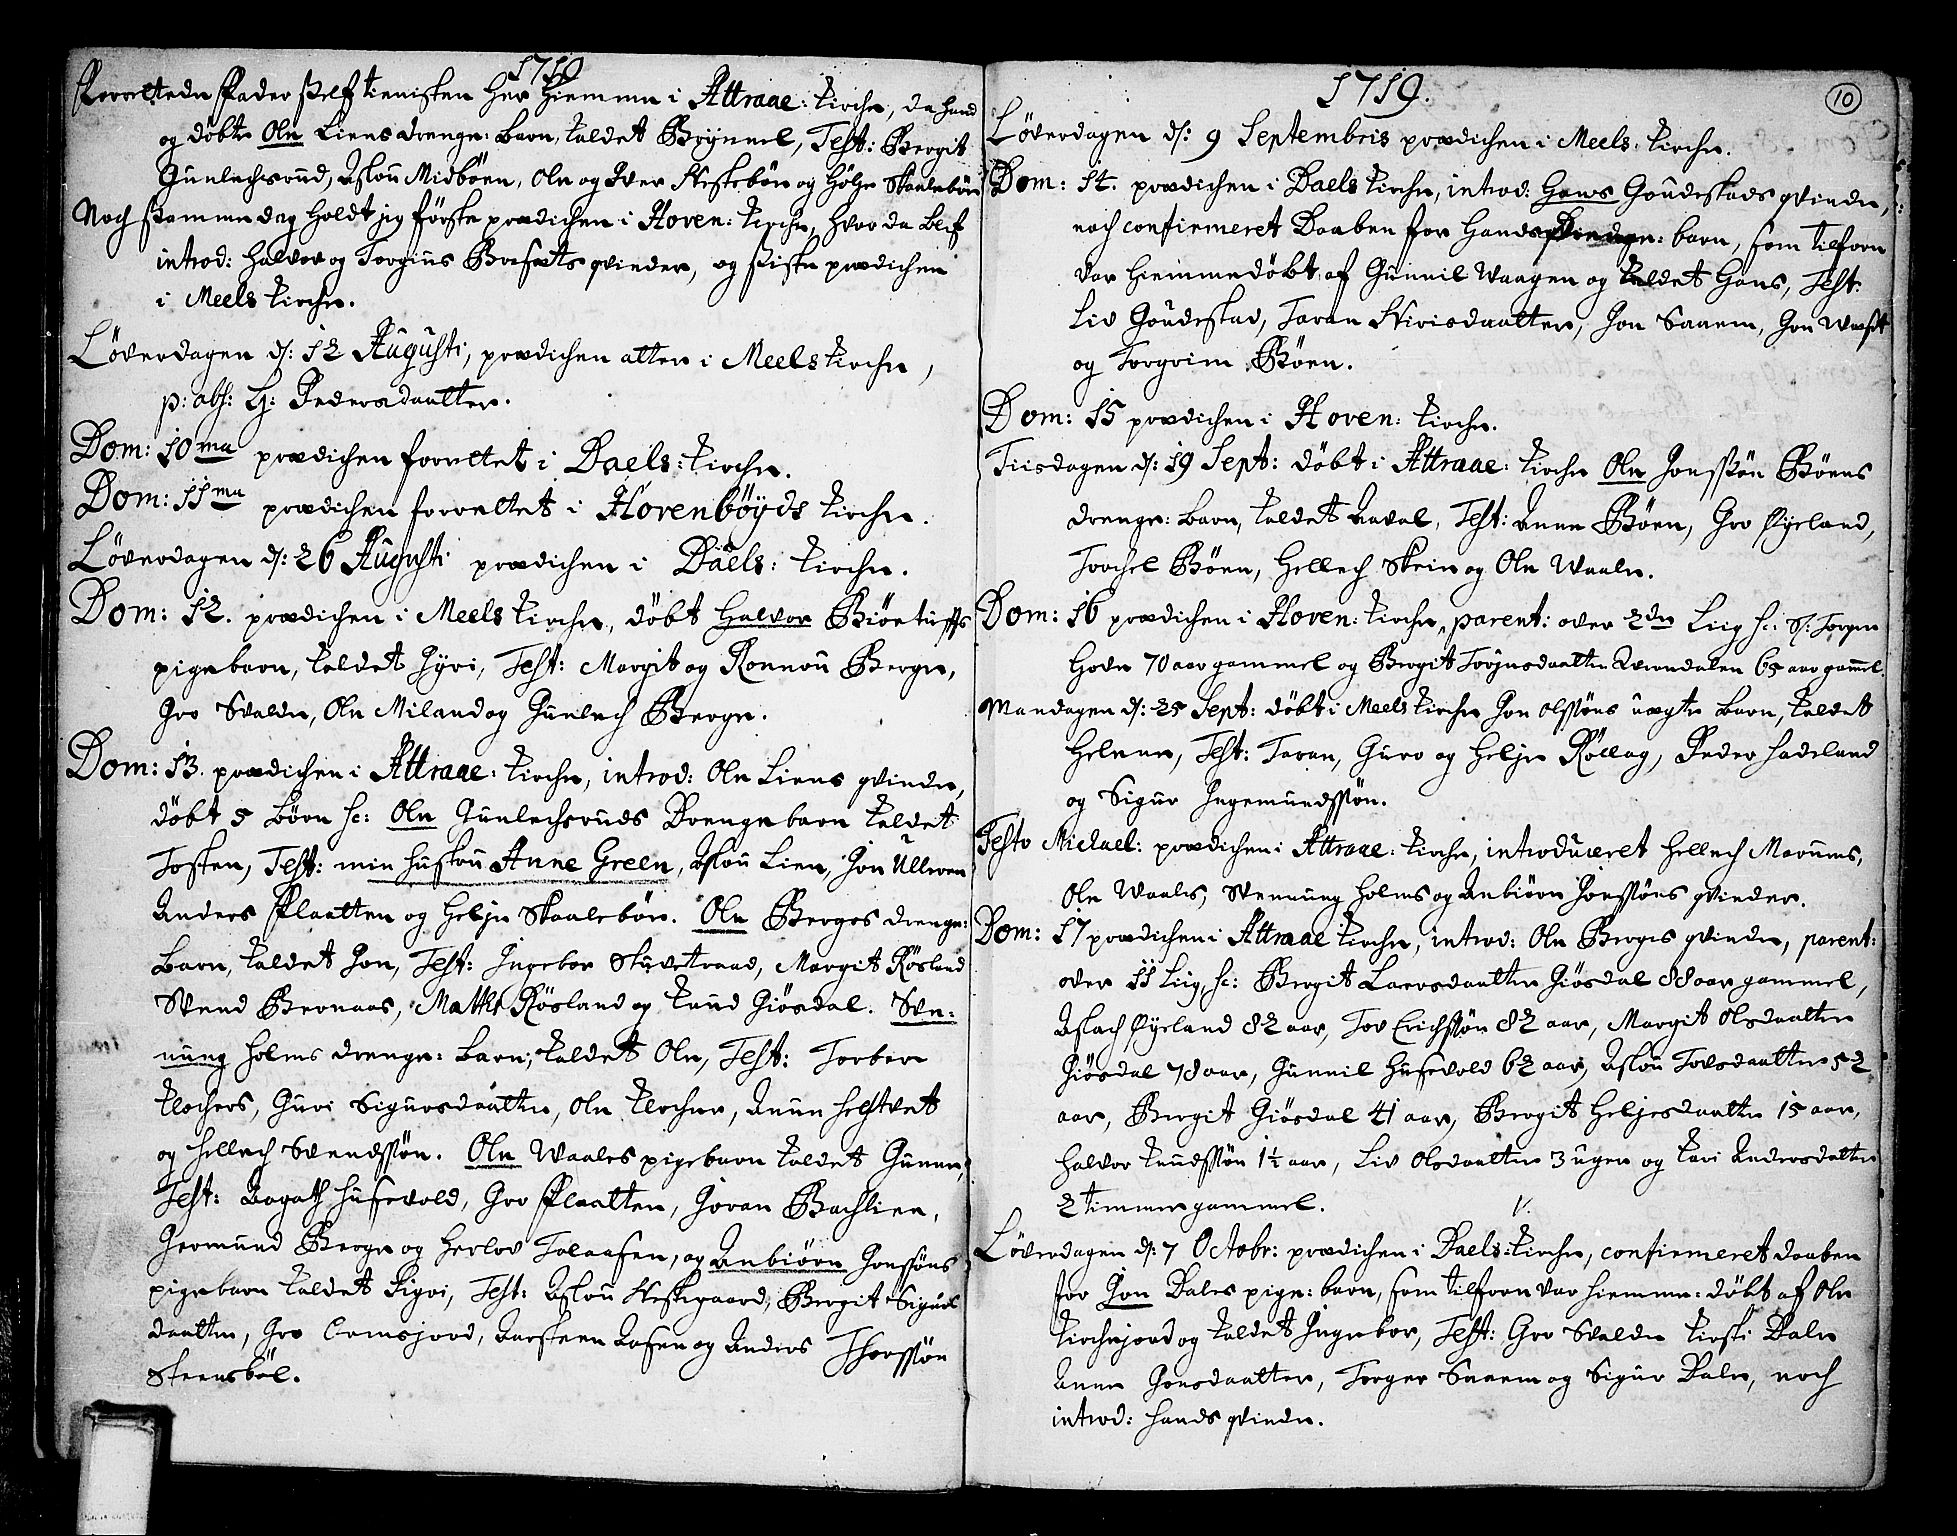 1719
forrettede Fader self tienisten her hiemme i Attraae: Kirche, da hand
og døbte Ole Liens drenge: barn, kaldet Brÿnnel, Test: Bergit
Gunlechsrud, Aslou Midböen, Ole og Iver Heskebøe og Hølje Skaalebøe
Noch samme dag holdt jeg förske prædichen i Hoven: Kirche, hvor da blef
introd: Halvor og Torgius qvinder, og siste prædichen
i Meels Kirche.
Løverdagen d: 12 Augusti, prædichen atter i Meels Kirche,
p: abs: Hr: Pedersdaatter.
Dom: 10ma prædichen forrettet i Daels: Kirche.
Dom: 11ma prædichen forrettet i Hovenbøÿds Kirche.
Løverdagen d: 26 Augusti prædichen i Daels: Kirche.
Dom: 12. prædichen i Meels Kirche, døbt Halvor Biørtuffts
pigebarn, kaldet Jÿri, Test: Margit og Ronnou Berge,
Gro Svalde, Ole Miland og Gunlech Berge.
Dom: 13. prædichen i Attraae: Kirche, introd: Ole Liens qvinde,
døbt 5 børn sc: Ole Gunlechsruds Drengebarn kaldet
Tosten, Test: min hustrou Anne Green, Aslou Lien, Jon Ulleren
Anders Plaatten og Helje Skaalebøe. Ole Berges drenge:
barn, kaldet Jon, Test: Ingebor Stuvetraad, Margit Røsland
Svend Bernaas, Matths Røsland og Knud Giøsdal. Sve-
nung Holms drenge: barn, kaldet Ole, Test: Torber
Klochers, Guri Sigursdaatter, Ole Klocher, Anne Helstvet
og Hellech Svendssøn. Ole Waales pigebarn kaldet Gunne,
Test: Aagath Husevold, Gro Plaatten, Joran Bachlien,
Germund Berge og Herlov Tolaafsen, og Anbiørn Jonssøns
pigebarn kaldet Sigri, Test: Aslou Heskegaard, Bergit Sigurs
daatter, Gro Ormsjord, Aarsteen Aasen og Anders Thorssøn
Steensbøl.
1719.
10
Løverdagen d: 9 Septembris prædichen i Meels Kirche.
Dom: 14. prædichen i Daels Kirche, introd: Hans Goudestads qvinde,
noch confirmeret Daaben for hands barn, som tilforn
var hiemmedöbt af Gunnil Waagen og kaldet Hans, Test:
Liv Goudestad, Taran Kirisdaatter, Jon Saaem, Jon
og Torgrim Bøen.
Dom: 15 prædichen i Hoven: Kirche.
Tiisdagen d: 19 Sept: døbt i Attraae: Kirche Ole Jonssøn Bøens
drenge: barn, kaldet Aaval, Test: Anne Bøen, Gro Rÿeland,
Torchel Bøen, Hellech Skeie og Ole Waale.
Dom: 16 prædichen i Hoven: Kirche, parent: over 2de Liig sc: S: Torger
Hovde 70 aar gammel og Bergit Torjusdaatter 65 aar gam̄el.
Mandagen d: 25 Sept: döbt i Meels Kirche Jon Olssøns uægte barn, kaldet
Helene, Test: Taran, Guro og Helje Röllag, Peder Hadeland
og Sigur Ingemundssøn.
Festo Michael: prædichen i Attraae: Kirche, introduceret Hellech Maruems,
Ole Waales, Svenung Holms og Anbiørn Jonssøns qvinder.
Dom: 17 prædichen i Attraae Kirche, introd: Ole Berges qvinde, parent:
over 11 Liig, sc: Bergit Laersdaatter Giøsdal 88 aar gammel,
Aslach Rÿeland 82 aar, Tov Erichssøn 82 aar, Margit Olsdaatter
Giøsdal 78 aar, Gunnil Husevold 62 aar, Aslou Tovsdaatter 52
aar, Bergit Giösdal 41 aar, Bergit Heljesdaatter 15 aar,
Halvor Knudssøn 1½ aar, Liv Olsdaatter 3 uger og Kari Andersdatter
2 timmer gammel.
Løverdagen d: 7 Octobr: prædichen i Daels: Kirche, confirmeret daaben
for Jon Dales pige: barn, som tilforn var hiemme: døbt af Ole
Kirchejord og kaldet Ingebor, Test: Gro Svalde Kirsti Dale
Anne Jonsdaatter, Torger Saaem og Sigur Dale, noch
introd: hands qvinde.